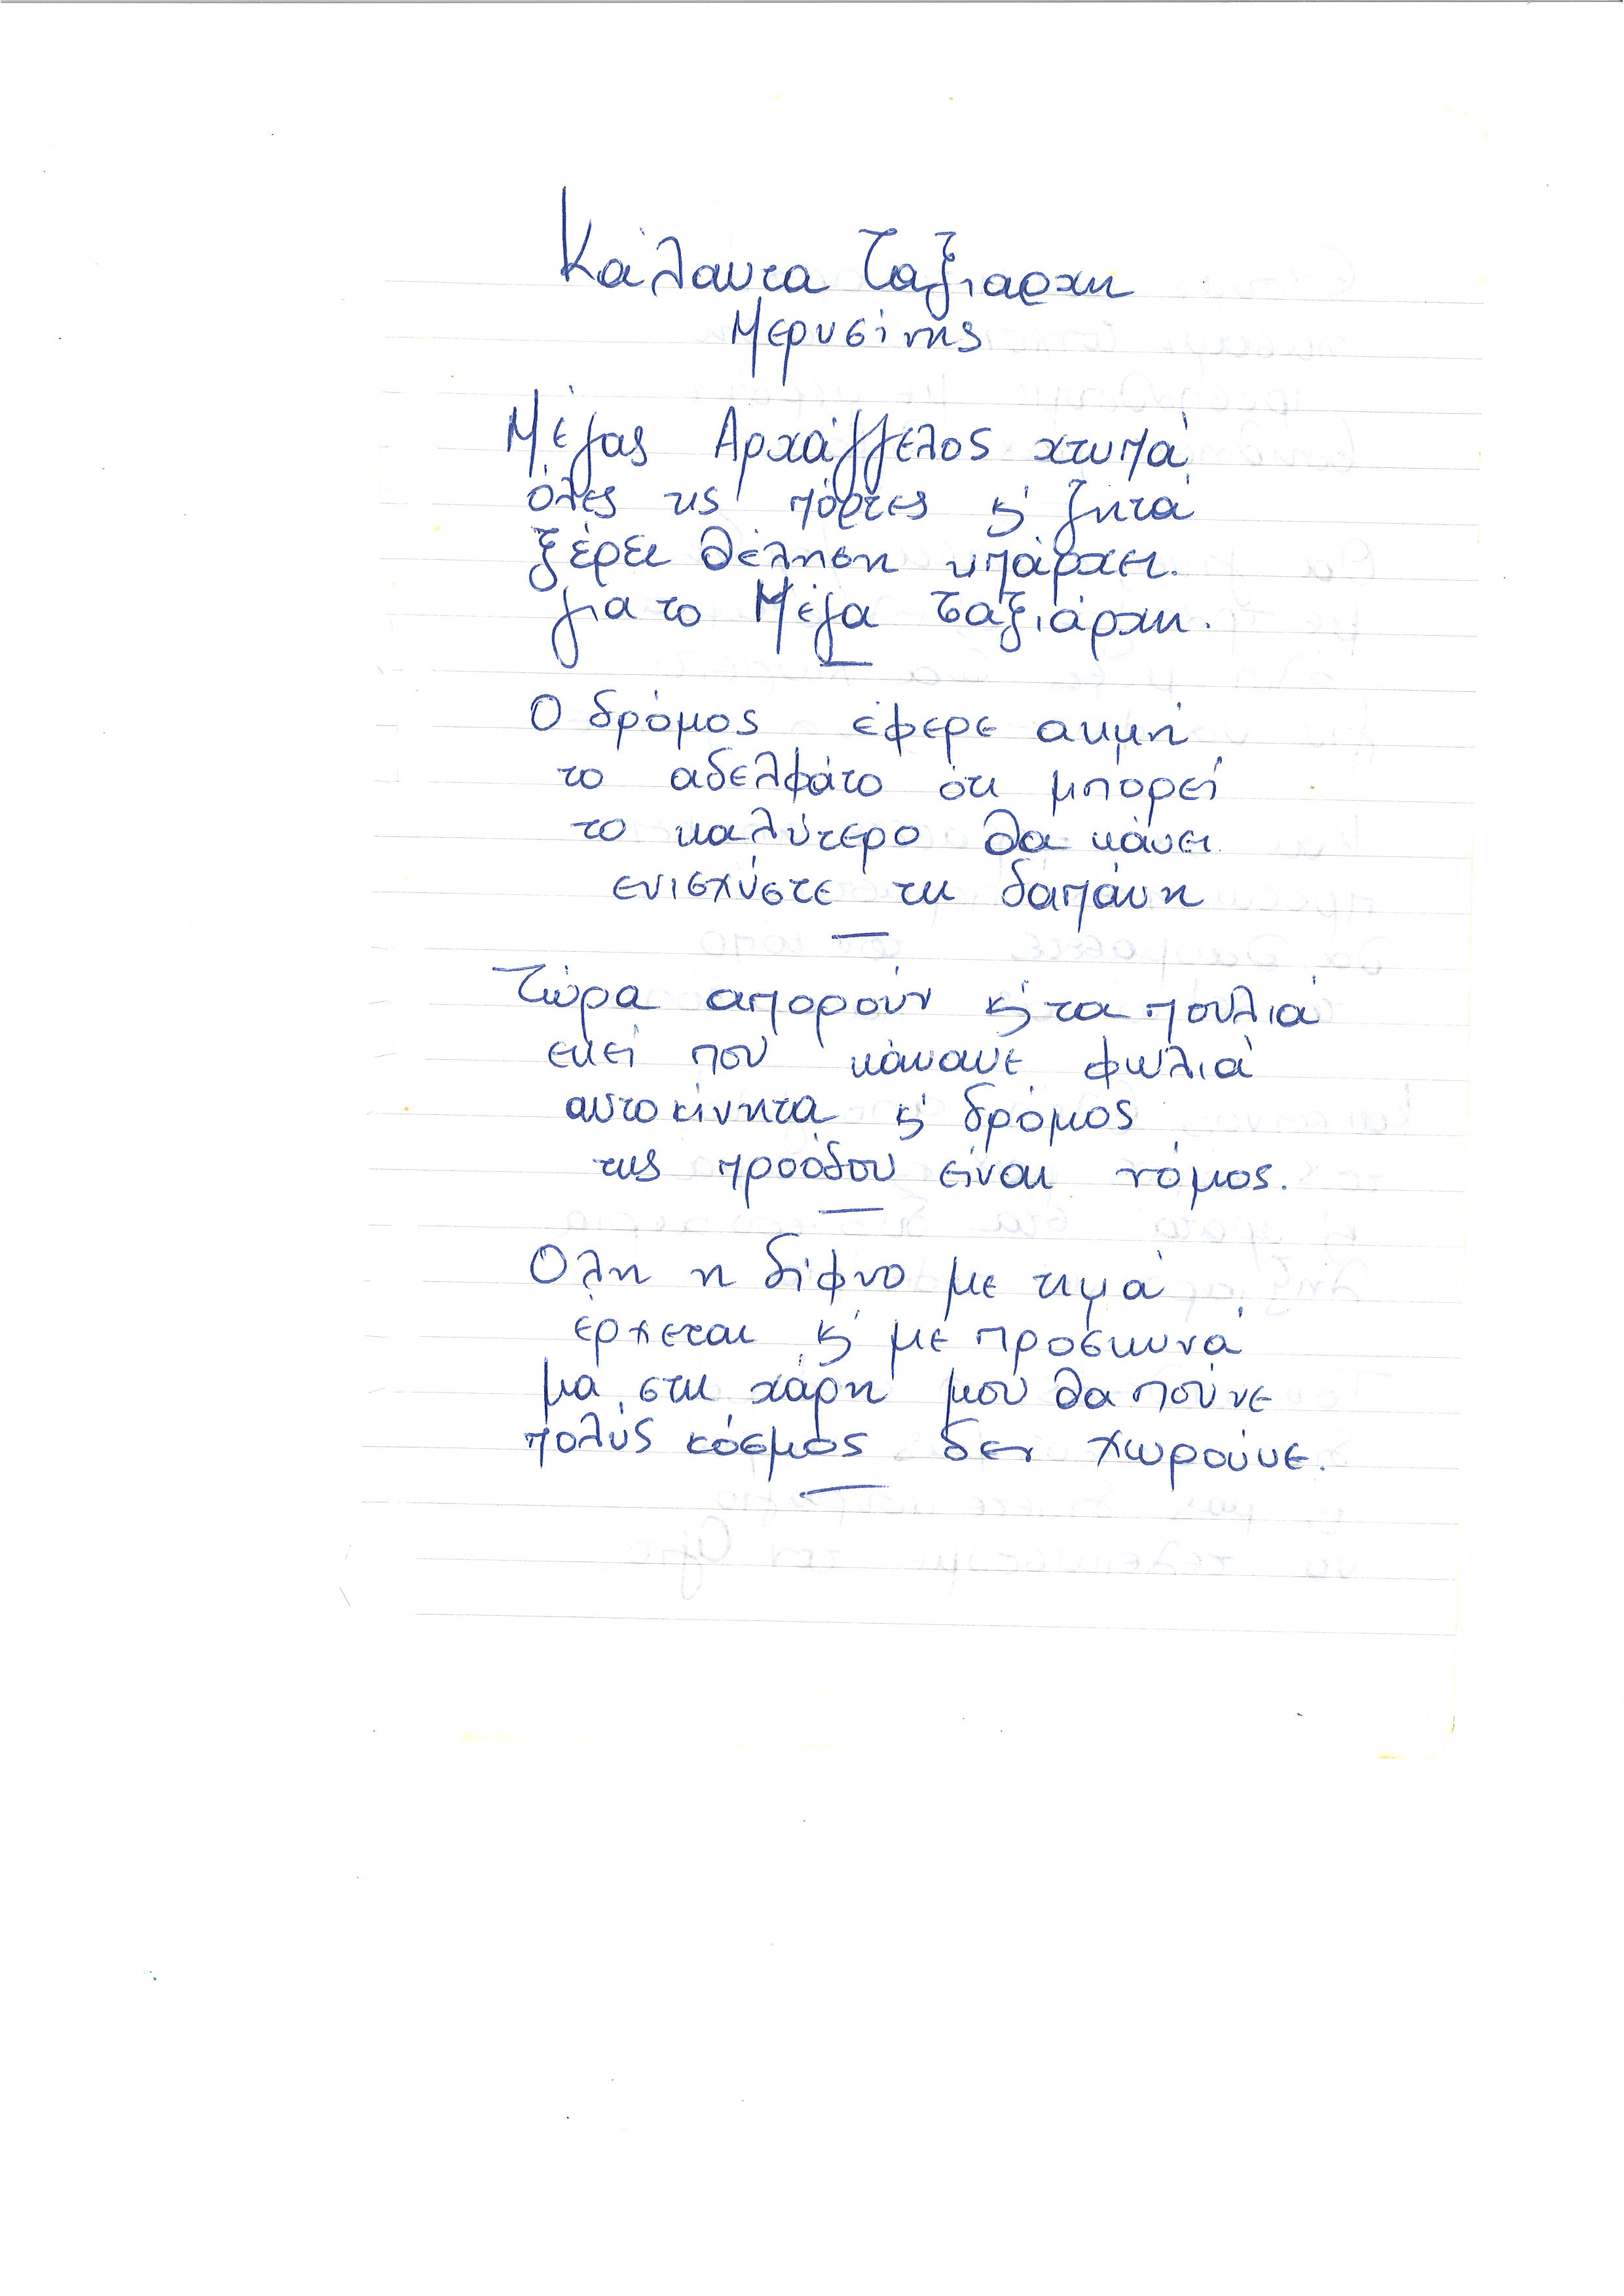 Κάλαντα Ταξιαρχη
Μερυσίνης
Μέγας Αρχάγγελος χτυπά
όλες τις πόρτες κ' ζητά
ξέρει θέληση υπάρχει.
για το Μέγα Ταξιάρχη.
Ο δρόμος έφερε ακμή
το αδελφάτο ότι μπορεί
το καλύτερο θα κάνει
ενισχύστε τη δαπάνη
Τώρα απορούν κ' τα πουλιά
εκεί που κάνανε φωλιά
αυτοκίνητα κ' δρόμος
της προόδου είναι νόμος.
Ολη η Σίφνο με τιμά
έρχεται κ' με προσκυνά
μα στη χάρη μου θα πούνε
πολύς κόσμος δεν χωρούνε.